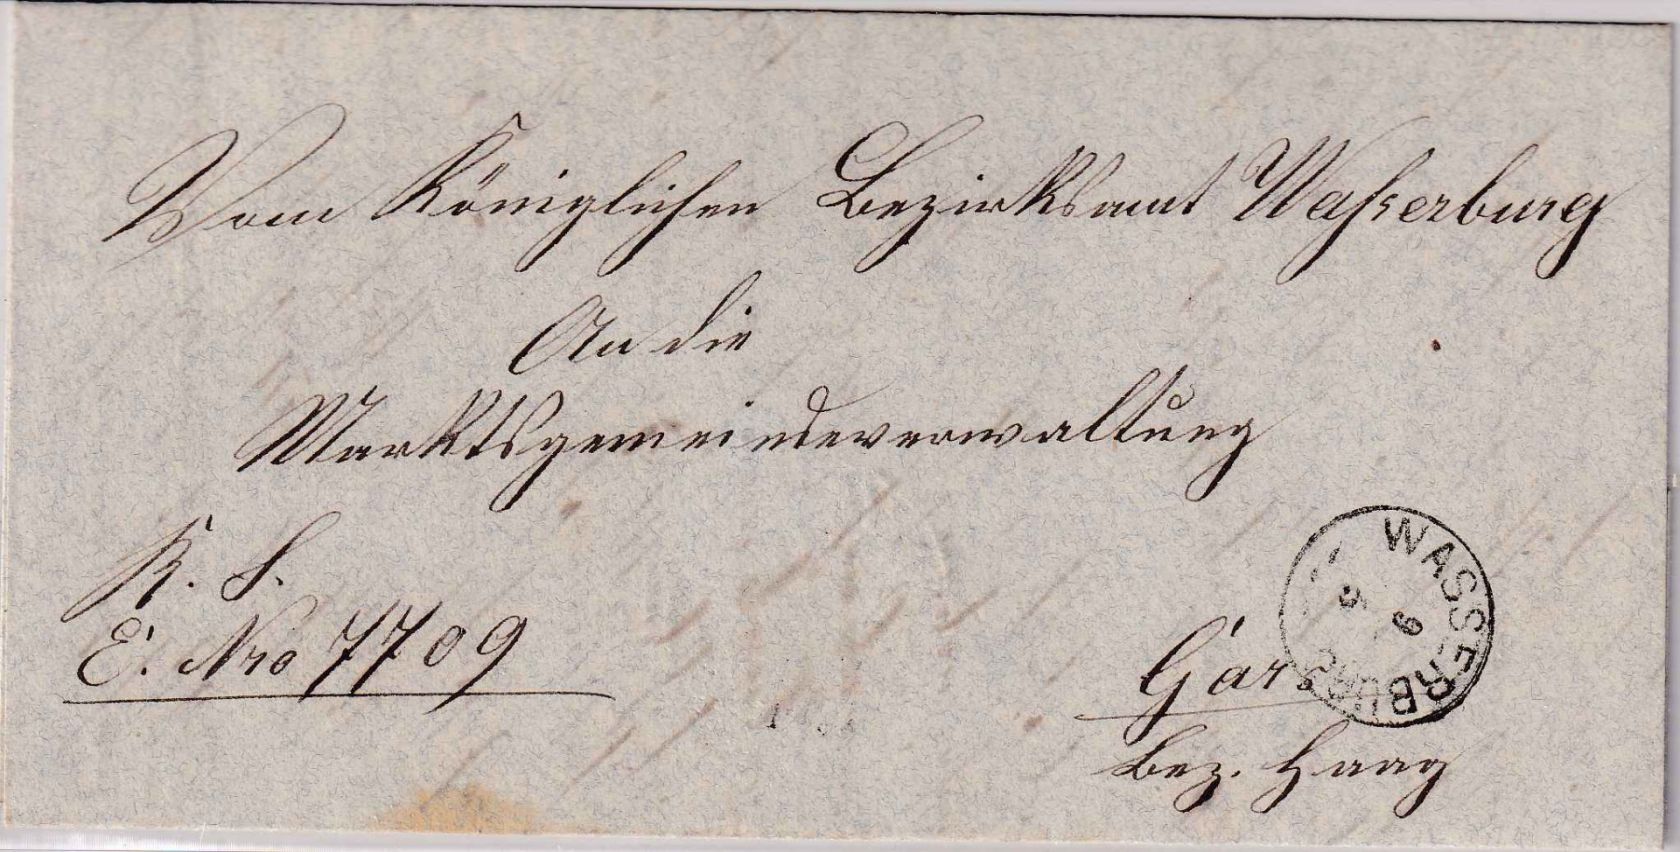 Vom Königlichen Bezirksamt Waßerburg
An die
Marktsgemeindeverwaltung
K. S.
E. Nro 7709
Gars
WASSERBURG
9
6
Bez. Haag